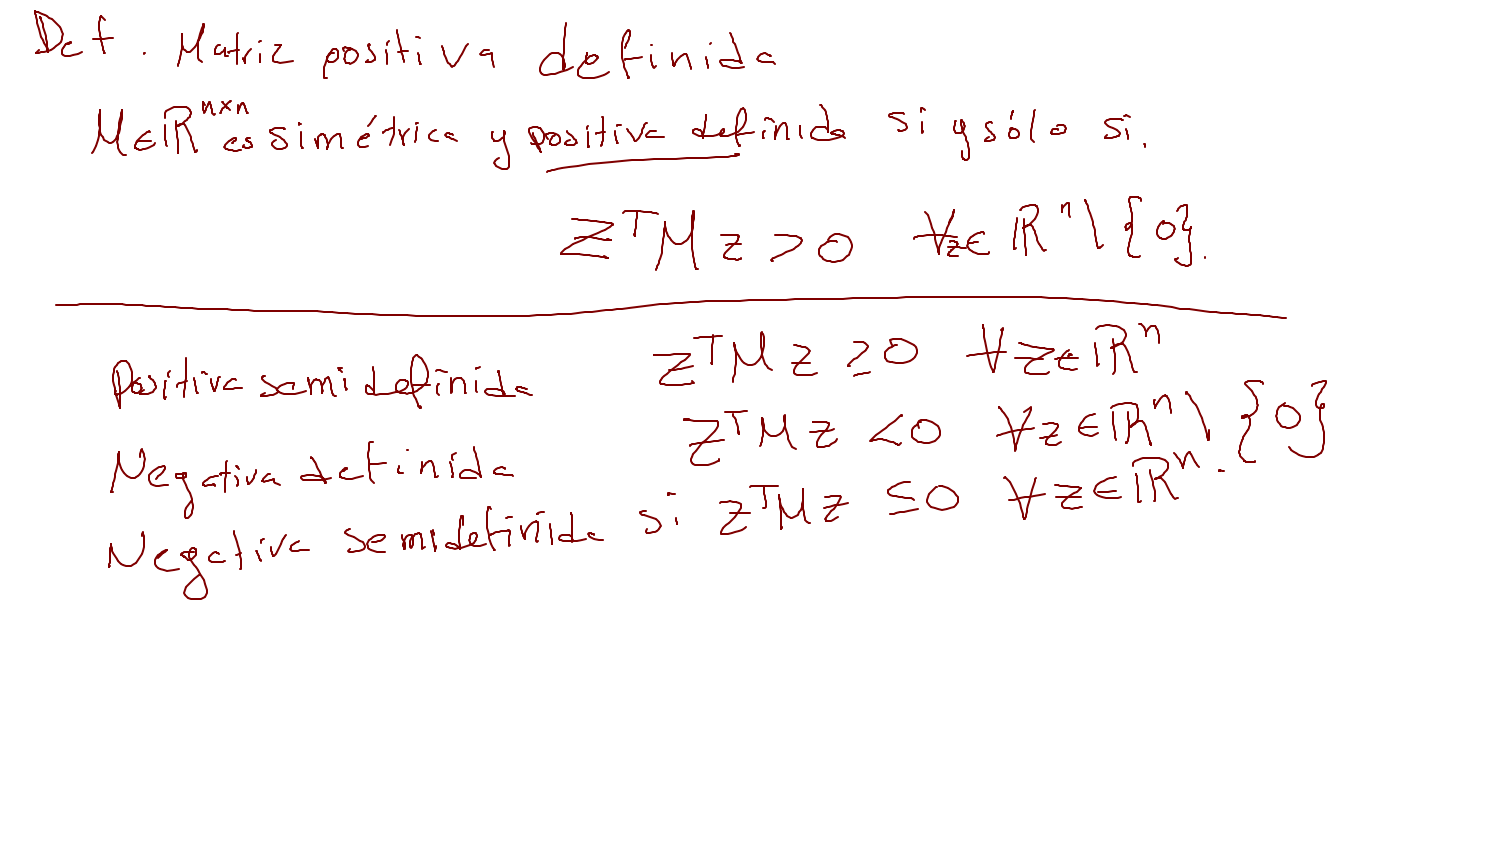 Def. Matriz positiva definida
M∈ℝⁿˣⁿ es simétrica y positiva definida si y sólo si.
zᵀMz>0 ∀z∈ℝⁿ\{0}.
Positiva semidefinida zᵀMz≥0 ∀z∈ℝⁿ
Negativa definida zᵀMz<0 ∀z∈ℝⁿ\{0}
Negativa semidefinida si zᵀMz≤0 ∀z∈ℝⁿ.